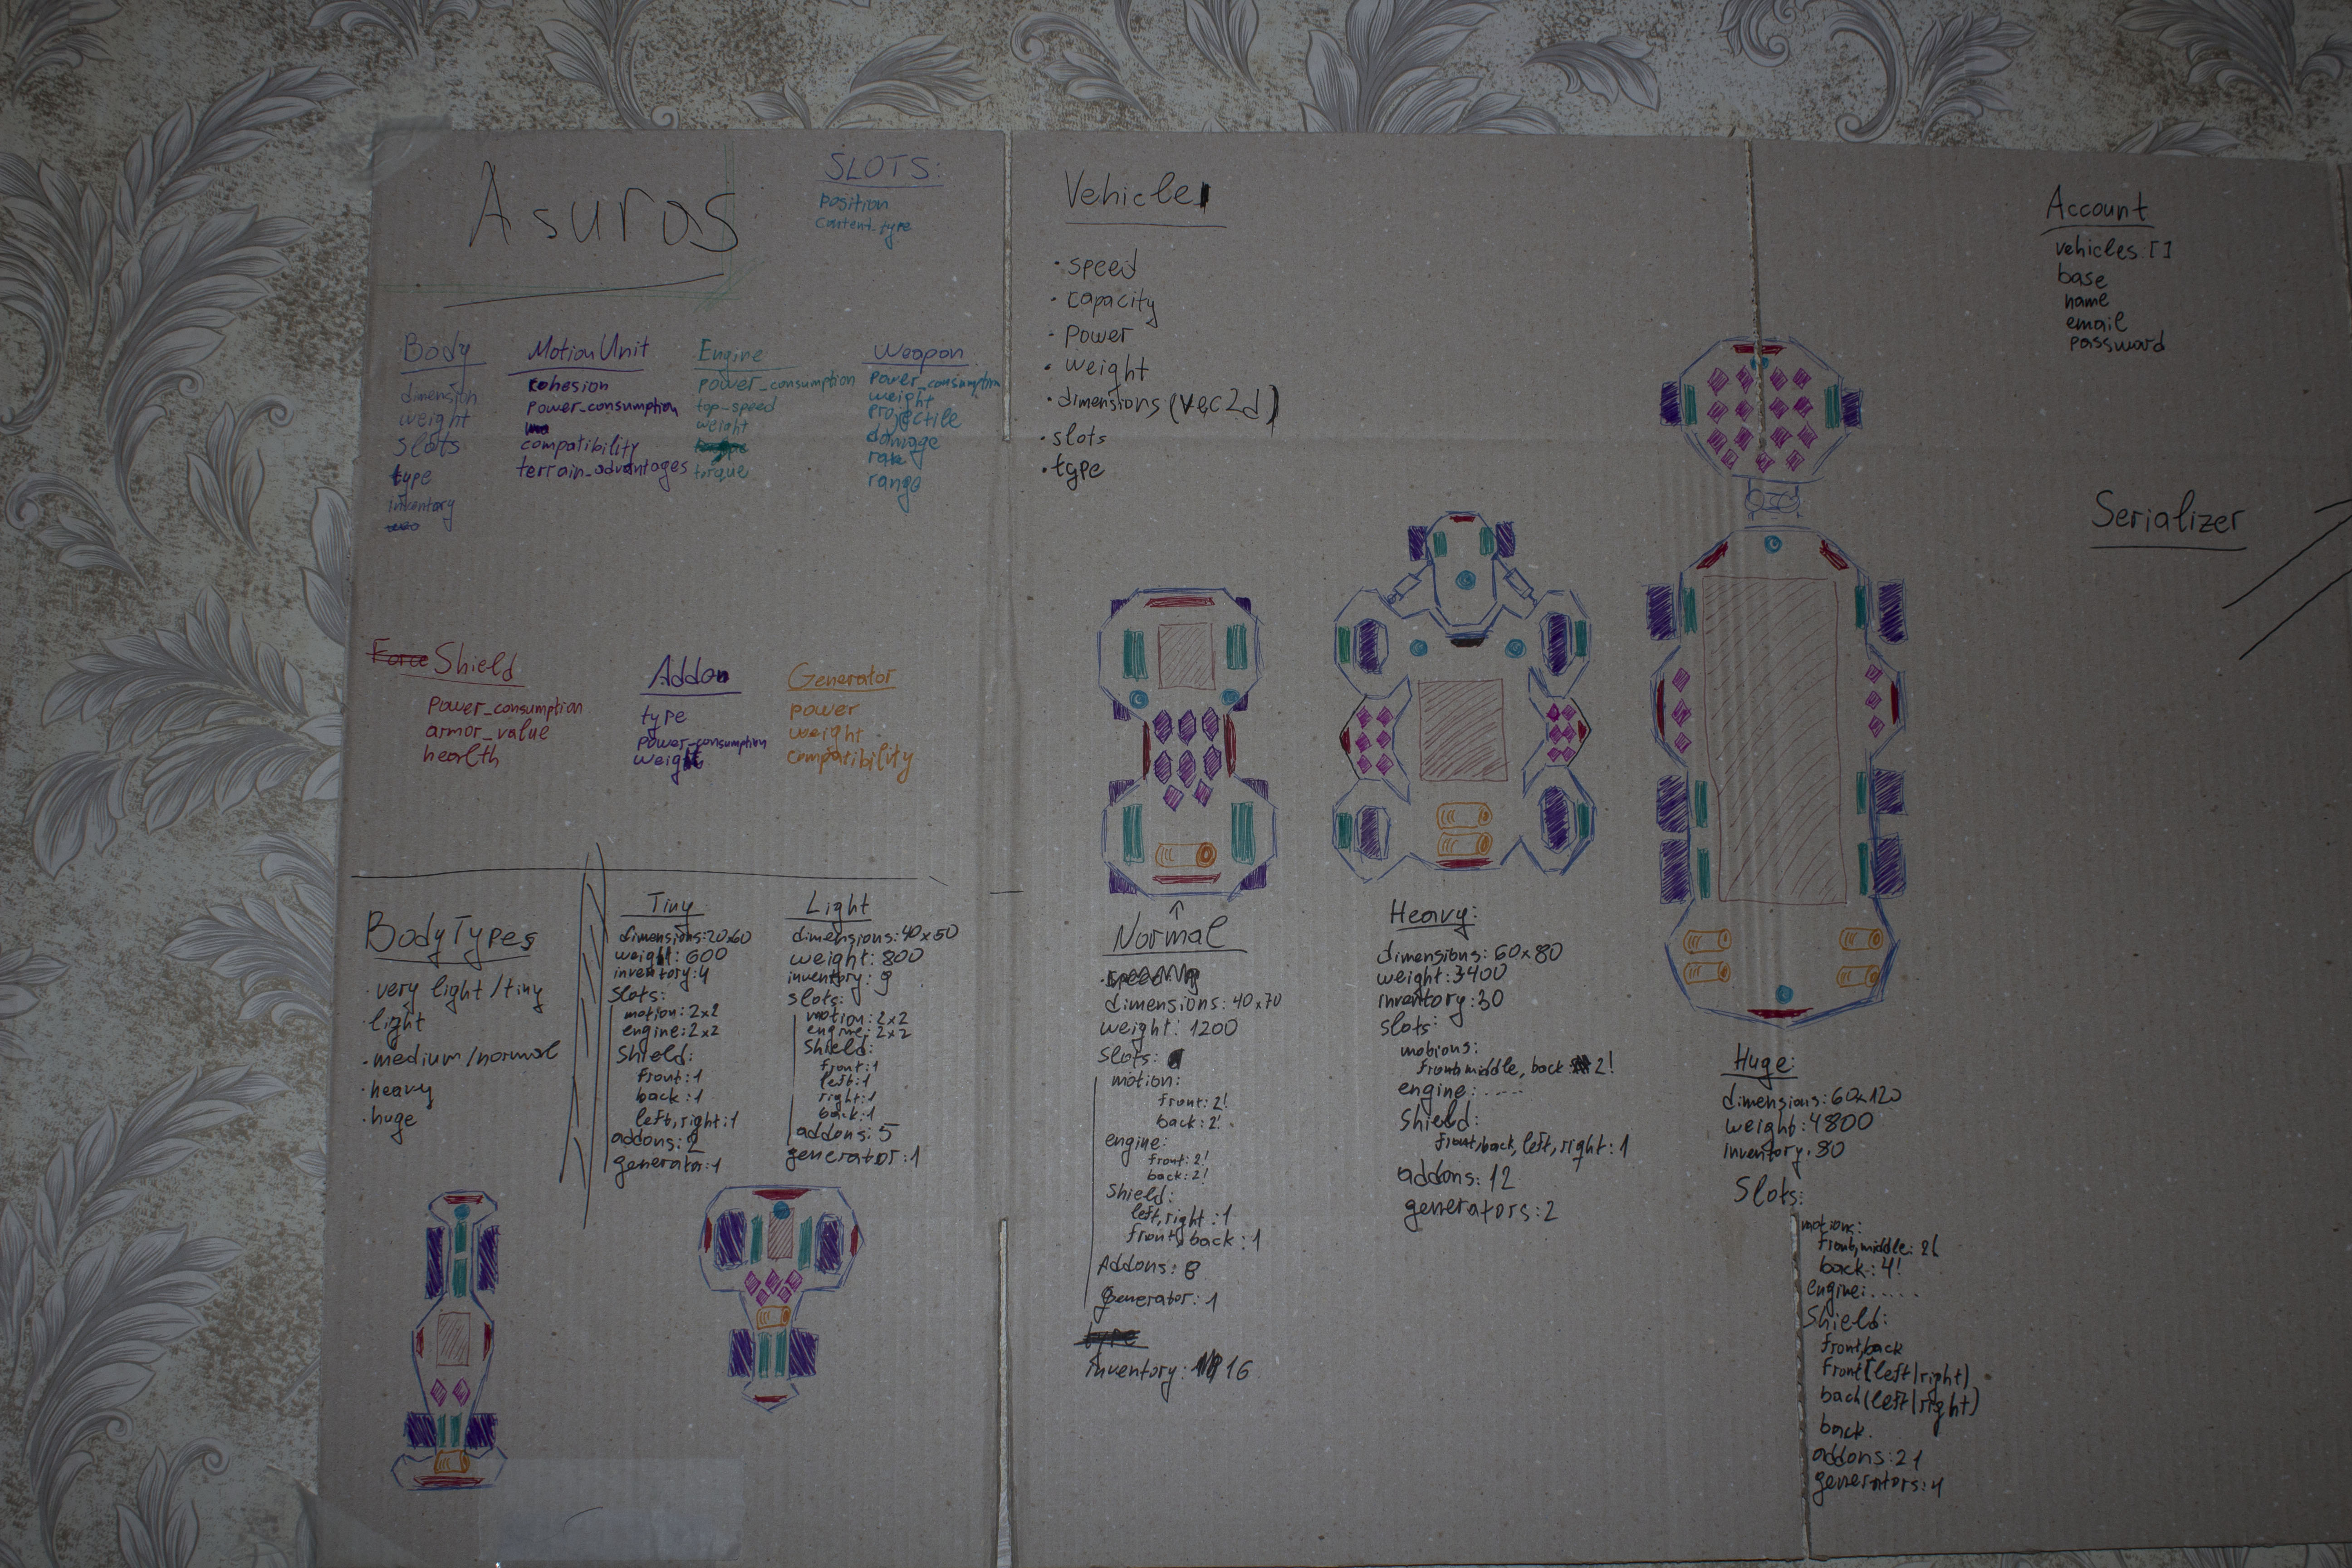 Asuros
SLOTS:
position
content_type
Body
dimension
weight
slots
type
inventory
MotionUnit
cohesion
power_consumption
compatibility
terrain_advantages
Engine
power_consumption
top_speed
weight
torque
Weapon
power_consumption
weight
projectile
damage
rate
range
Force Shield
power_consumption
armor_value
health
Addon
type
power_consumption
weight
Generator
power
weight
compatibility
BodyTypes
· very light/tiny
· light
· medium/normal
· heavy
· huge
Tiny
dimensions: 20x60
weight: 600
inventory: 4
slots:
motion: 2x2
engine: 2x2
shield:
front: 1
back: 1
left, right: 1
addons: 2
generator: 1
Light
dimensions: 40x50
weight: 800
inventory: 9
slots:
motion: 2x2
engine: 2x2
shield:
front: 1
left: 1
right: 1
back: 1
addons: 5
generator: 1
Vehicle
· speed
· capacity
· power
· weight
· dimensions (vec2d)
· slots
· type
Normal
dimensions: 40x70
weight: 1200
slots:
motion:
front: 2!
back: 2!
engine:
front: 2!
back: 2!
shield:
left, right: 1
front, back: 1
Addons: 8
generator: 1
type
inventory: 16
Heavy:
dimensions: 60x80
weight: 3400
inventory: 30
slots:
motions:
front, middle, back 2!
engine: .....
shield:
front, back, left, right: 1
addons: 12
generators: 2
Huge:
dimensions: 60x120
weight: 4800
inventory: 80
Slots:
motions:
front, middle: 2!
back: 4!
engine: .....
shield:
front, back
front(left|right)
back(left|right)
back.
addons: 21
generators: 4
Account
vehicles: []
base
name
email
password
Serializer